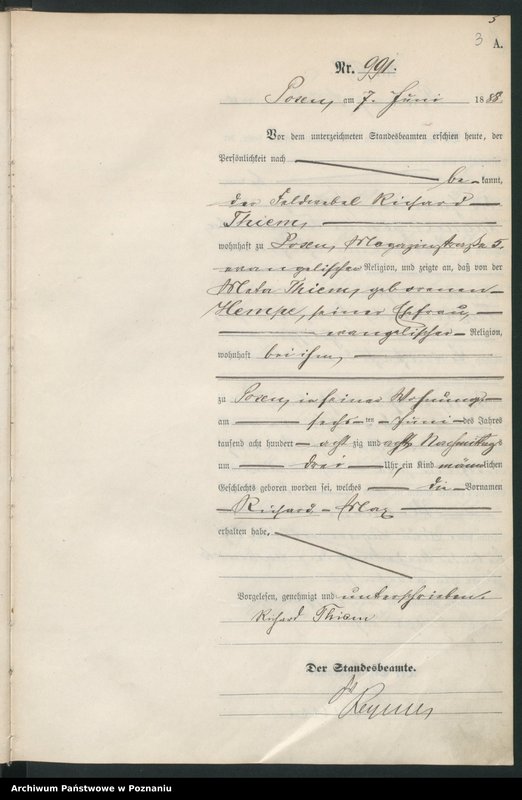 5
3 A.
Nr. 991.
Posen, am 7. Juni 1888.
Vor dem unterzeichneten Standesbeamten erschien heute, der
Persönlichkeit nach
bekannt,
der Feldwebel Richard
Thiem,
wohnhaft zu Posen, Magazinstraße 5.
evangelischer Religion, und zeigte an, daß von der
Meta Thiem, geborenen
Hempe, seiner Ehefrau,
evangelischer Religion,
wohnhaft bei ihm,
zu Posen, in seiner Wohnung
am sechsten Juni des Jahres
tausend acht hundert achtzig und acht Nachmittags
um drei Uhr, ein Kind männlichen
Geschlechts geboren worden sei, welches die Vornamen
Richard Max
erhalten habe.
Vorgelesen, genehmigt und unterschrieben.
Richard Thiem
Der Standesbeamte.
Archiwum Państwowe w Poznaniu